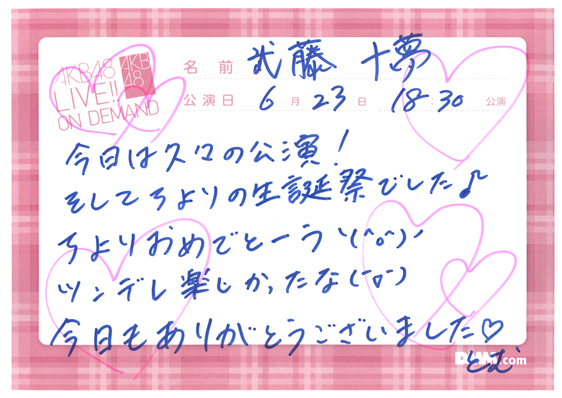 AKB48
LIVE!!
ON DEMAND
AKB
48
名前 武藤 十夢
公演日 6月23日 18:30 公演
今日は久々の公演!
そしてちよりの生誕祭でした♪
ちよりおめでとーうヽ(^o^)ノ
ツンデレ楽しかったな(ˇoˇ)
今日もありがとうございました♡
とむ
DMM.com